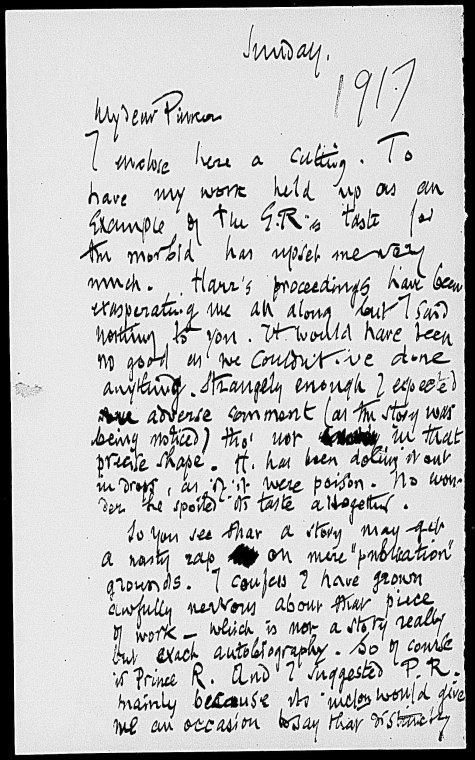 Sunday.
1917
My dear Pinker
I enclose here a cutting. To
have my work held up as an
Example of the E.R.'s taste for
the morbid has upset me very
much. Harr's proceedings have been
exasperating me all along but I said
nothing to you. It would have been
no good as we couldn't 've done
anything. Strangely enough I expected
adverse comment (as the story was
being noticed) tho' not in that
precise shape. H. has been doling it out
in drops, as if it were poison. No won-
der he spoiled its taste altogether.
So you see that a story may get
a nasty rap on mere "publication"
grounds. I confess I have grown
awfully nervous about that piece
of work — which is not a story really
but exact autobiography. So of course
is Prince R. And I suggested P.R.
mainly because its would give
me an occasion to say that distinctly